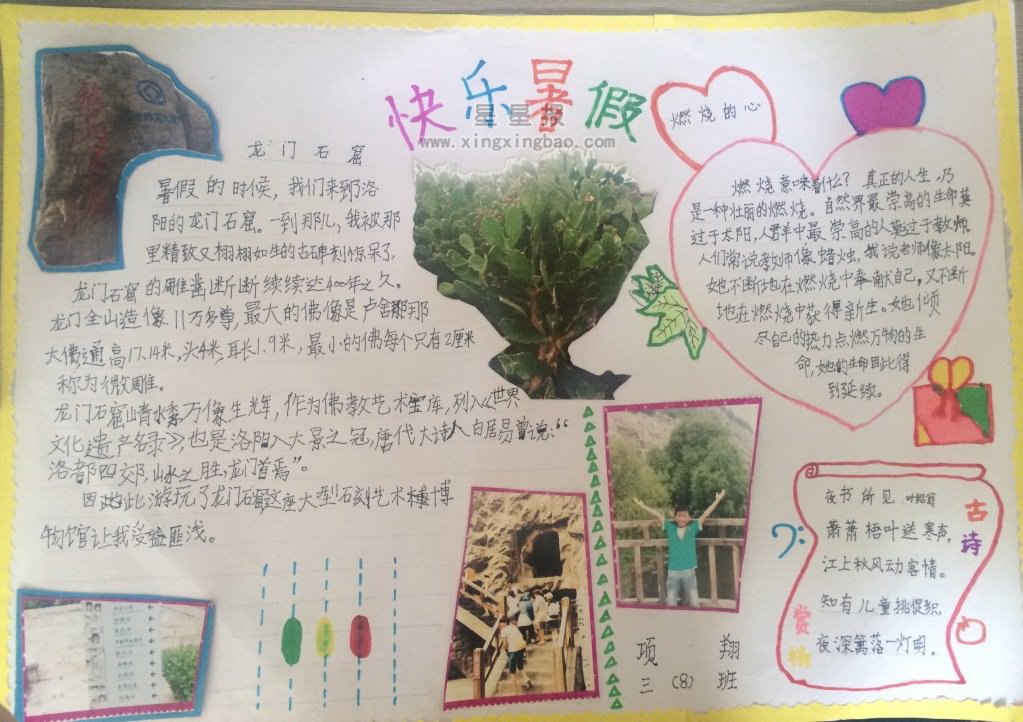 快乐暑假
星星报
www.xingxingbao.com
龙门石窟
暑假的时候，我们来到洛
阳的龙门石窟。一到那儿，我被那
里精致又栩栩如生的古碑刻惊呆了，
龙门石窟的周维凿断断续续达400年之久。
龙门全山造像11万多尊，最大的佛像是卢舍那
大佛，通高17.14米，头4米，耳长1.9米，最小的佛每个只有2厘米
称为微雕。
龙门石窟山清水秀万像生辉，作为佛教艺术宝库，列入《世界
文化遗产名录》也是洛阳八大景之冠，唐代大诗人白居易曾说：“
洛都四郊，山水之胜，龙门首焉”。
因此此游玩了龙门石窟这座大型石刻艺术博
物馆让我受益匪浅。
燃烧的心
燃烧意味着什么？真正的人生，乃
是一种壮丽的燃烧。自然界最崇高的生命莫
过于太阳，人群中最崇高的人莫过于教师。
人们常说教师像蜡烛，我说老师像太阳。
她不断地在燃烧中奉献自己，又不断
地在燃烧中获得新生。她倾
尽自己的热力点燃万物的生
命，她的生命因此得
到延续。
夜书所见 叶绍翁
萧萧梧叶送寒声，
江上秋风动客情。
知有儿童挑促织，
夜深篱落一灯明。
古诗
赏
项翔
三（8）班